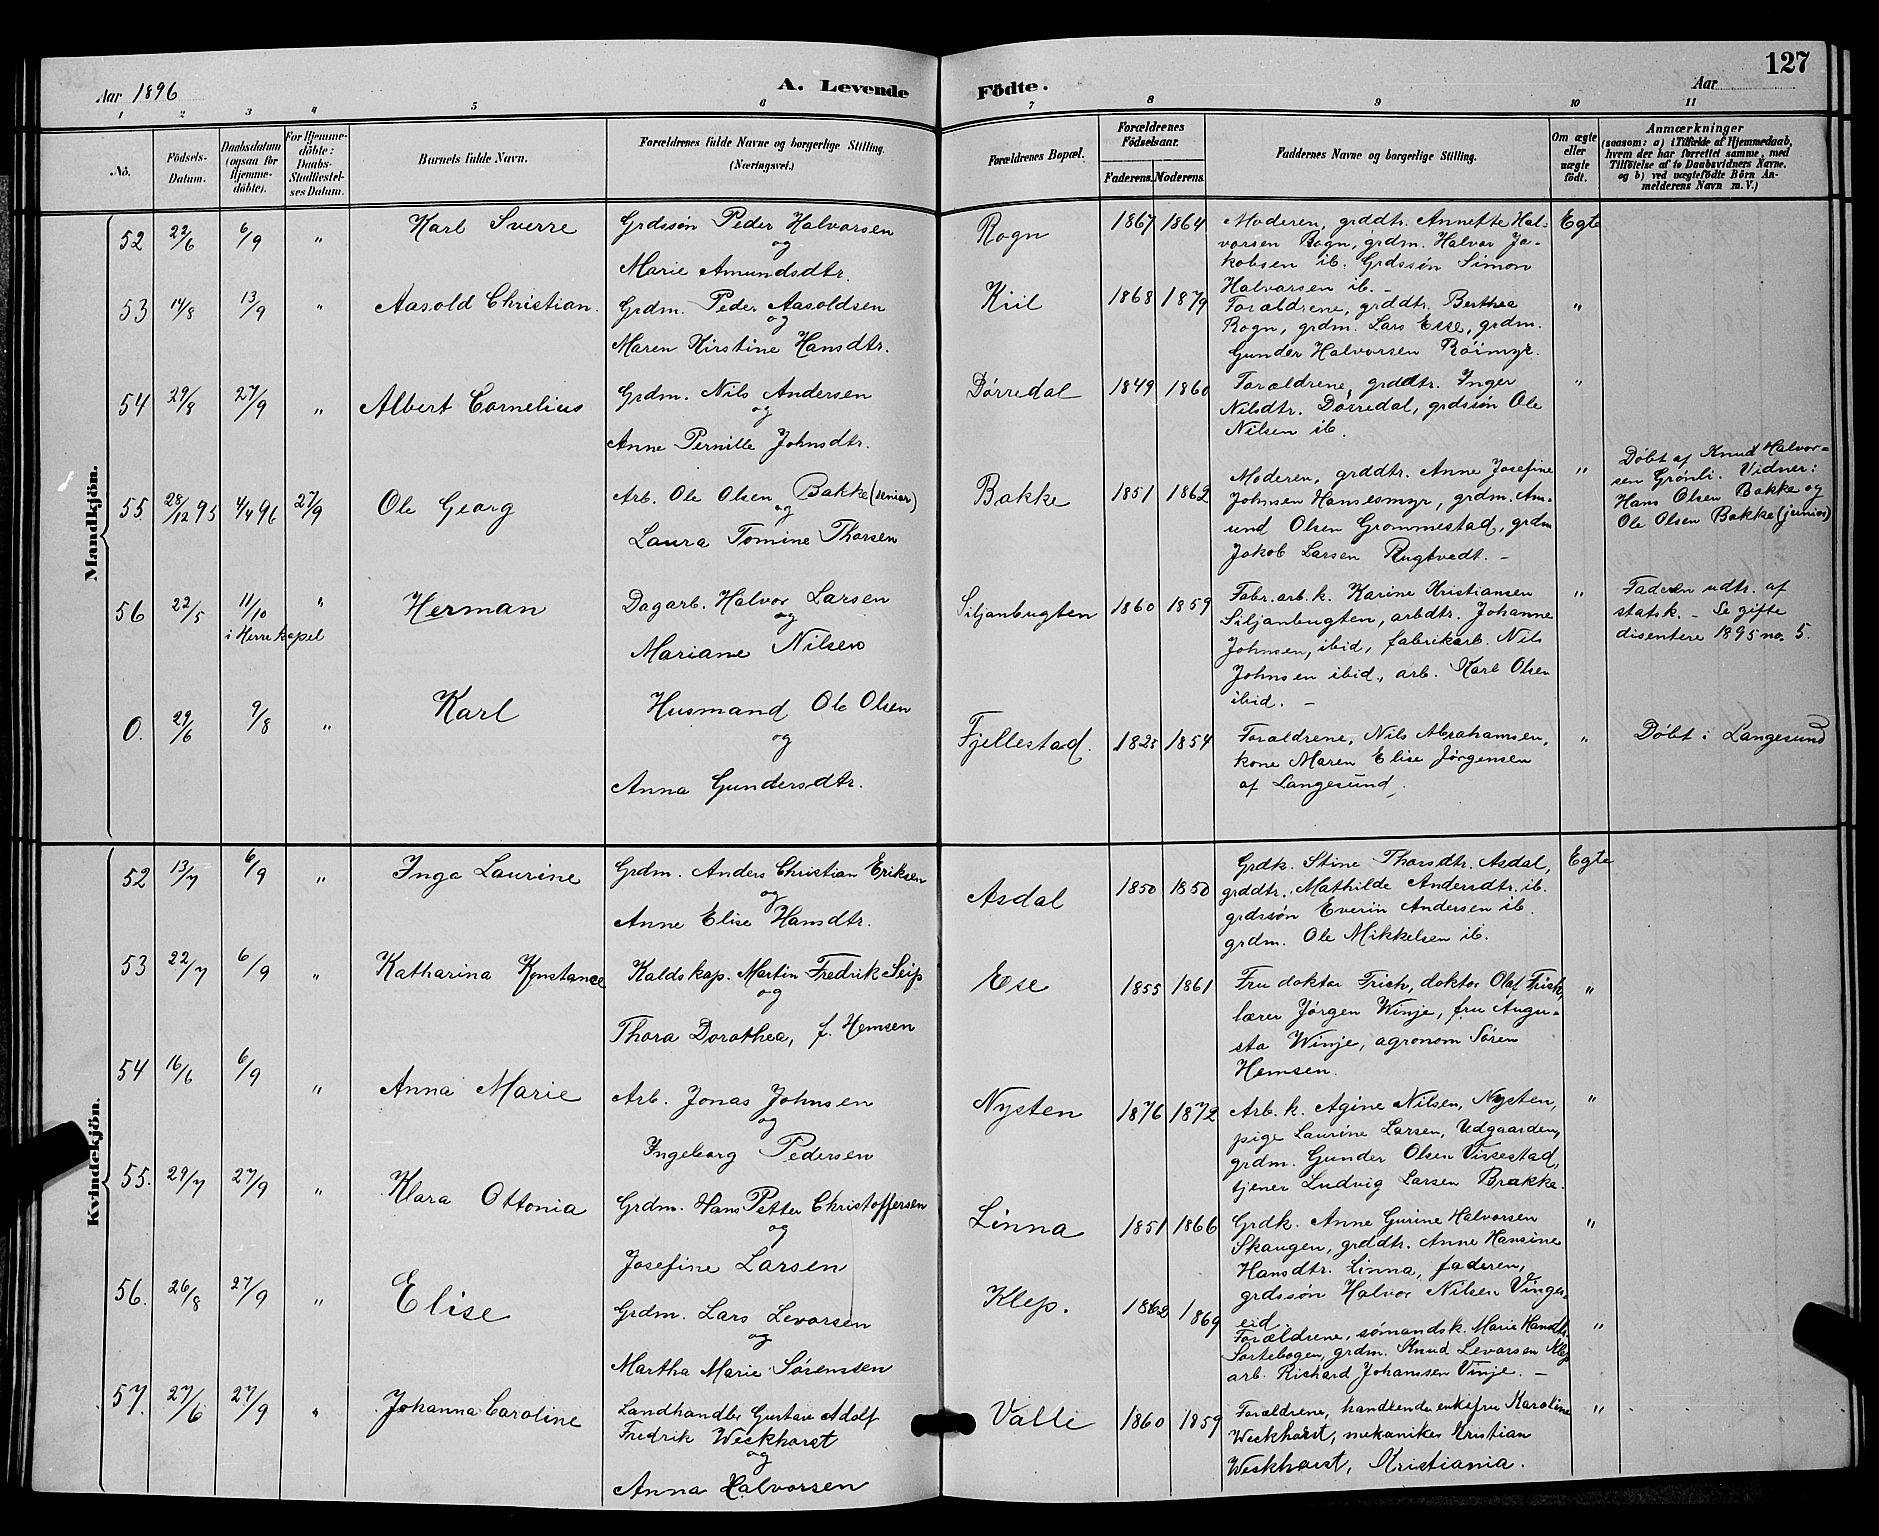 127
Aar 1896
A. Levende Födte.
Aar
1 2 3 4 5 6 7 8 9 10 11
No.
Födsels-
Datum.
Daabsdatum
(ogsaa for
Hjemme-
döbte).
For Hjemme-
döbte:
Daabs-
Stadfæstel-
ses Datum.
Barnets fulde Navn.
Forældrenes fulde Navne og borgerlige Stilling.
(Næringsvei.)
Forældrenes Bopæl.
Forældrenes
Födselsaar.
Faderens. Moderens.
Faddernes Navne og borgerlige Stilling.
Om ægte
eller
uægte
födt.
Anmærkninger
(saasom: a) i Tilfælde af Hjemmedaab,
hvem der har forrettet samme, med
Tilföielse af to Daabsvidners Navne.
og b) ved uægtefödte Börn An-
melderens Navn m. V.)
Mandkjön.
52 22/6 6/9 " Karl Sverre
Grdssøn Peder Halvorsen
og
Marie Amundsdtr.
Rogn 1867 1864
Moderen, grddtr. Annette Hal-
vorsen Rogn, grdm. Halvor Ja-
kobsen ib. Grdssøn Simon
Halvorsen ib. -
Egte
53 14/8 13/9 " Aasold Christian.
Grdm. Peder Aasoldsen
og
Maren Kirstine Hansdtr.
Kiil 1868 1879
Forældrene, grddtr. Berthea
Rogn, grdm. Lars Ese, grdm.
Gunder Halvorsen Röimyr.
"
54 29/8 27/9 " Albert Cornelius
Grdm. Nils Andersen
og
Anne Pernille Johnsdtr.
Dørredal 1849 1860
Forældrene, grddtr. Inger
Nilsdtr. Dørredal, grdssøn Ole
Nilsen ib.
"
55. 28/12 95 4/4 96 27/9 Ole Georg
Arb. Ole Olsen Bakke (senior)
og
Laura Tomine Thorsen
Bakke 1851 1862
Moderen, grddtr. Anne Josefine
Johnsen Hanesmyr, grdm. Am-
und Olsen Grommestad, grdm
Jakob Larsen Rugtvedt. -
"
Døbt af Knud Halvor-
sen Grønli. Vidner:
Hans Olsen Bakke og
Ole Olsen Bakke (junior)
56 22/5 11/10 " Herman
i Herre kapel
Dagarb. Halvor Larsen
og
Mariane Nilsen
Siljanbugten 1860 1859
Fabr. arb. k. Karine Kristiansen
Siljanbugten, arbdtr. Johanne
Johnsen, ibid, fabrikarb. Nils
Johnsen ibid., arb. Karl Olsen
ibid. -
"
Faderen udtr. af
statsk. - Se gifte
disentere 1895 no. 5.
0. 29/6 9/8 " Karl
Husmand Ole Olsen
og
Anna Gundersdtr.
Fjellestad. 1825 1854
Forældrene, Nils Abrahamsen,
kone Maren Elise Jørgensen
af Langesund,
"
Døbt i Langesund
Kvindekjön.
52 13/7 6/9 " Inga Laurine
Grdm. Anders Christian Eriksen
og
Anne Elise Hansdtr.
Asdal 1850 1850
Grdk. Stine Thorsdtr. Asdal,
grddtr. Mathilde Andersdtr. ib.
grdssøn Everin Andersen ib.
grdm. Ole Mikkelsen ib.
Egte
53 22/7 6/9 " Katharina Konstance
Kaldskap. Martin Fredrik Seip
og
Thora Dorothea, f. Hemsen
Ese 1855 1861
Fru doktor Frich, doktor Olaf Frich,
lærer Jørgen Winje, fru Augu-
sta Winje, agronom Søren
Hemsen.
"
54 16/6 6/9 " Anna Marie
Arb. Jonas Johnsen
og
Ingeborg Pedersen
Nysten 1876 1872
Arb. k. Agine Nilsen, Nysten,
pige Laurine Larsen, Udgaarden,
grdm. Gunder Olsen Vissestad,
tjener Ludvig Larsen Brakke.
"
55. 29/7 27/9 " Klara Ottonia
Grdm. Hans Petter Christoffersen
og
Josefine Larsen
Linna 1851 1866
Grdk. Anne Gurine Halvorsen
Skaugen, grddtr. Anne Hansine
Hansdtr. Linna, faderen,
grdssøn Halvor Nilsen Vinger-
eid.
"
56. 26/8 27/9 " Elise
Grdm. Lars Levorsen
og
Martha Marie Sørensen
Klep. 1862 1869
Forældrene, sømandsk. Marie Hansdtr.
Sortebogen, grdm. Knud Levorsen Klep
arb. Richard Johannsen Vinje. -
"
57. 27/6 27/9 " Johanna Caroline
Landhandler Gustav Adolf
Fredrik Weckhorst
og
Anna Halvorsen
Valle 1860 1859
Forældrene, handlende enkefru Karoline
Weckhorst, mekaniker Kristian
Weckhorst, Kristiania.
"